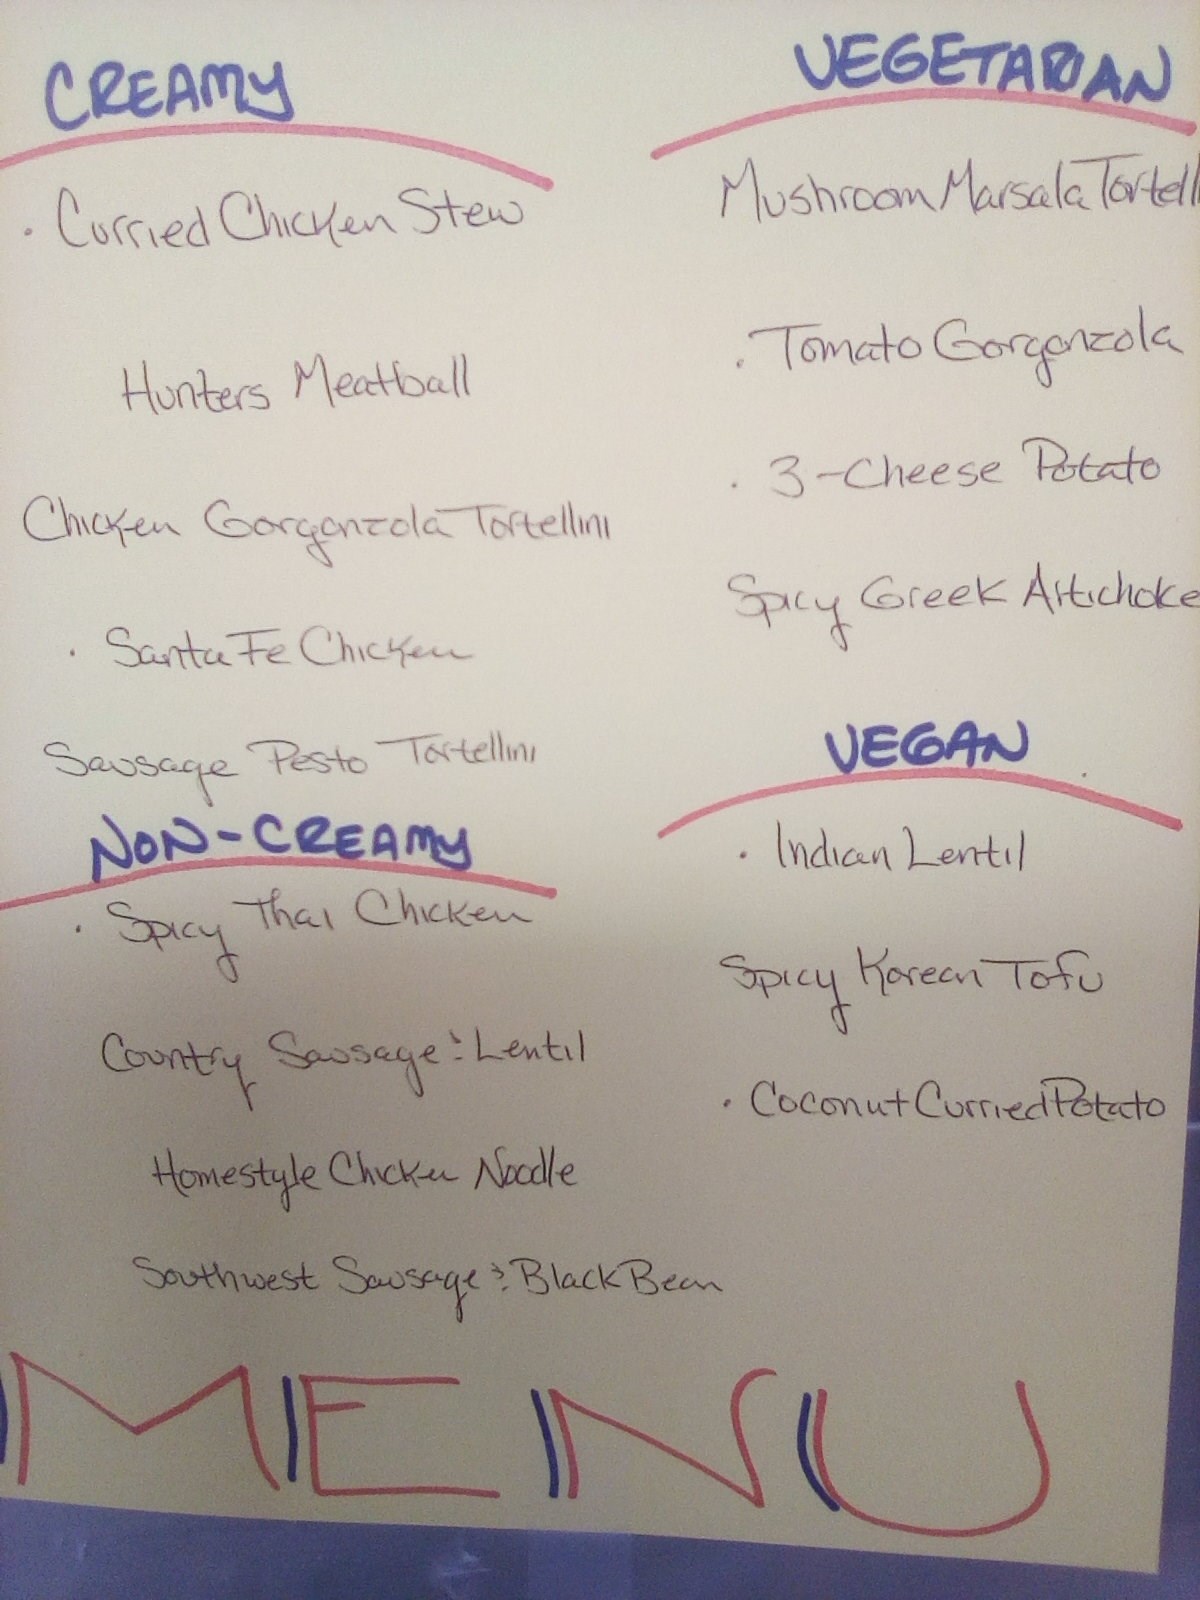 CREAMY
· Curried Chicken Stew
Hunters Meatball
Chicken Gorgonzola Tortellini
· Santa Fe Chicken
Sausage Pesto Tortellini
NON-CREAMY
· Spicy Thai Chicken
Country Sausage & Lentil
Homestyle Chicken Noodle
Southwest Sausage & Black Bean
VEGETARIAN
Mushroom Marsala Tortell
· Tomato Gorgonzola
· 3-Cheese Potato
Spicy Greek Artichoke
VEGAN
· Indian Lentil
Spicy Korean Tofu
· Coconut Curried Potato
MENU